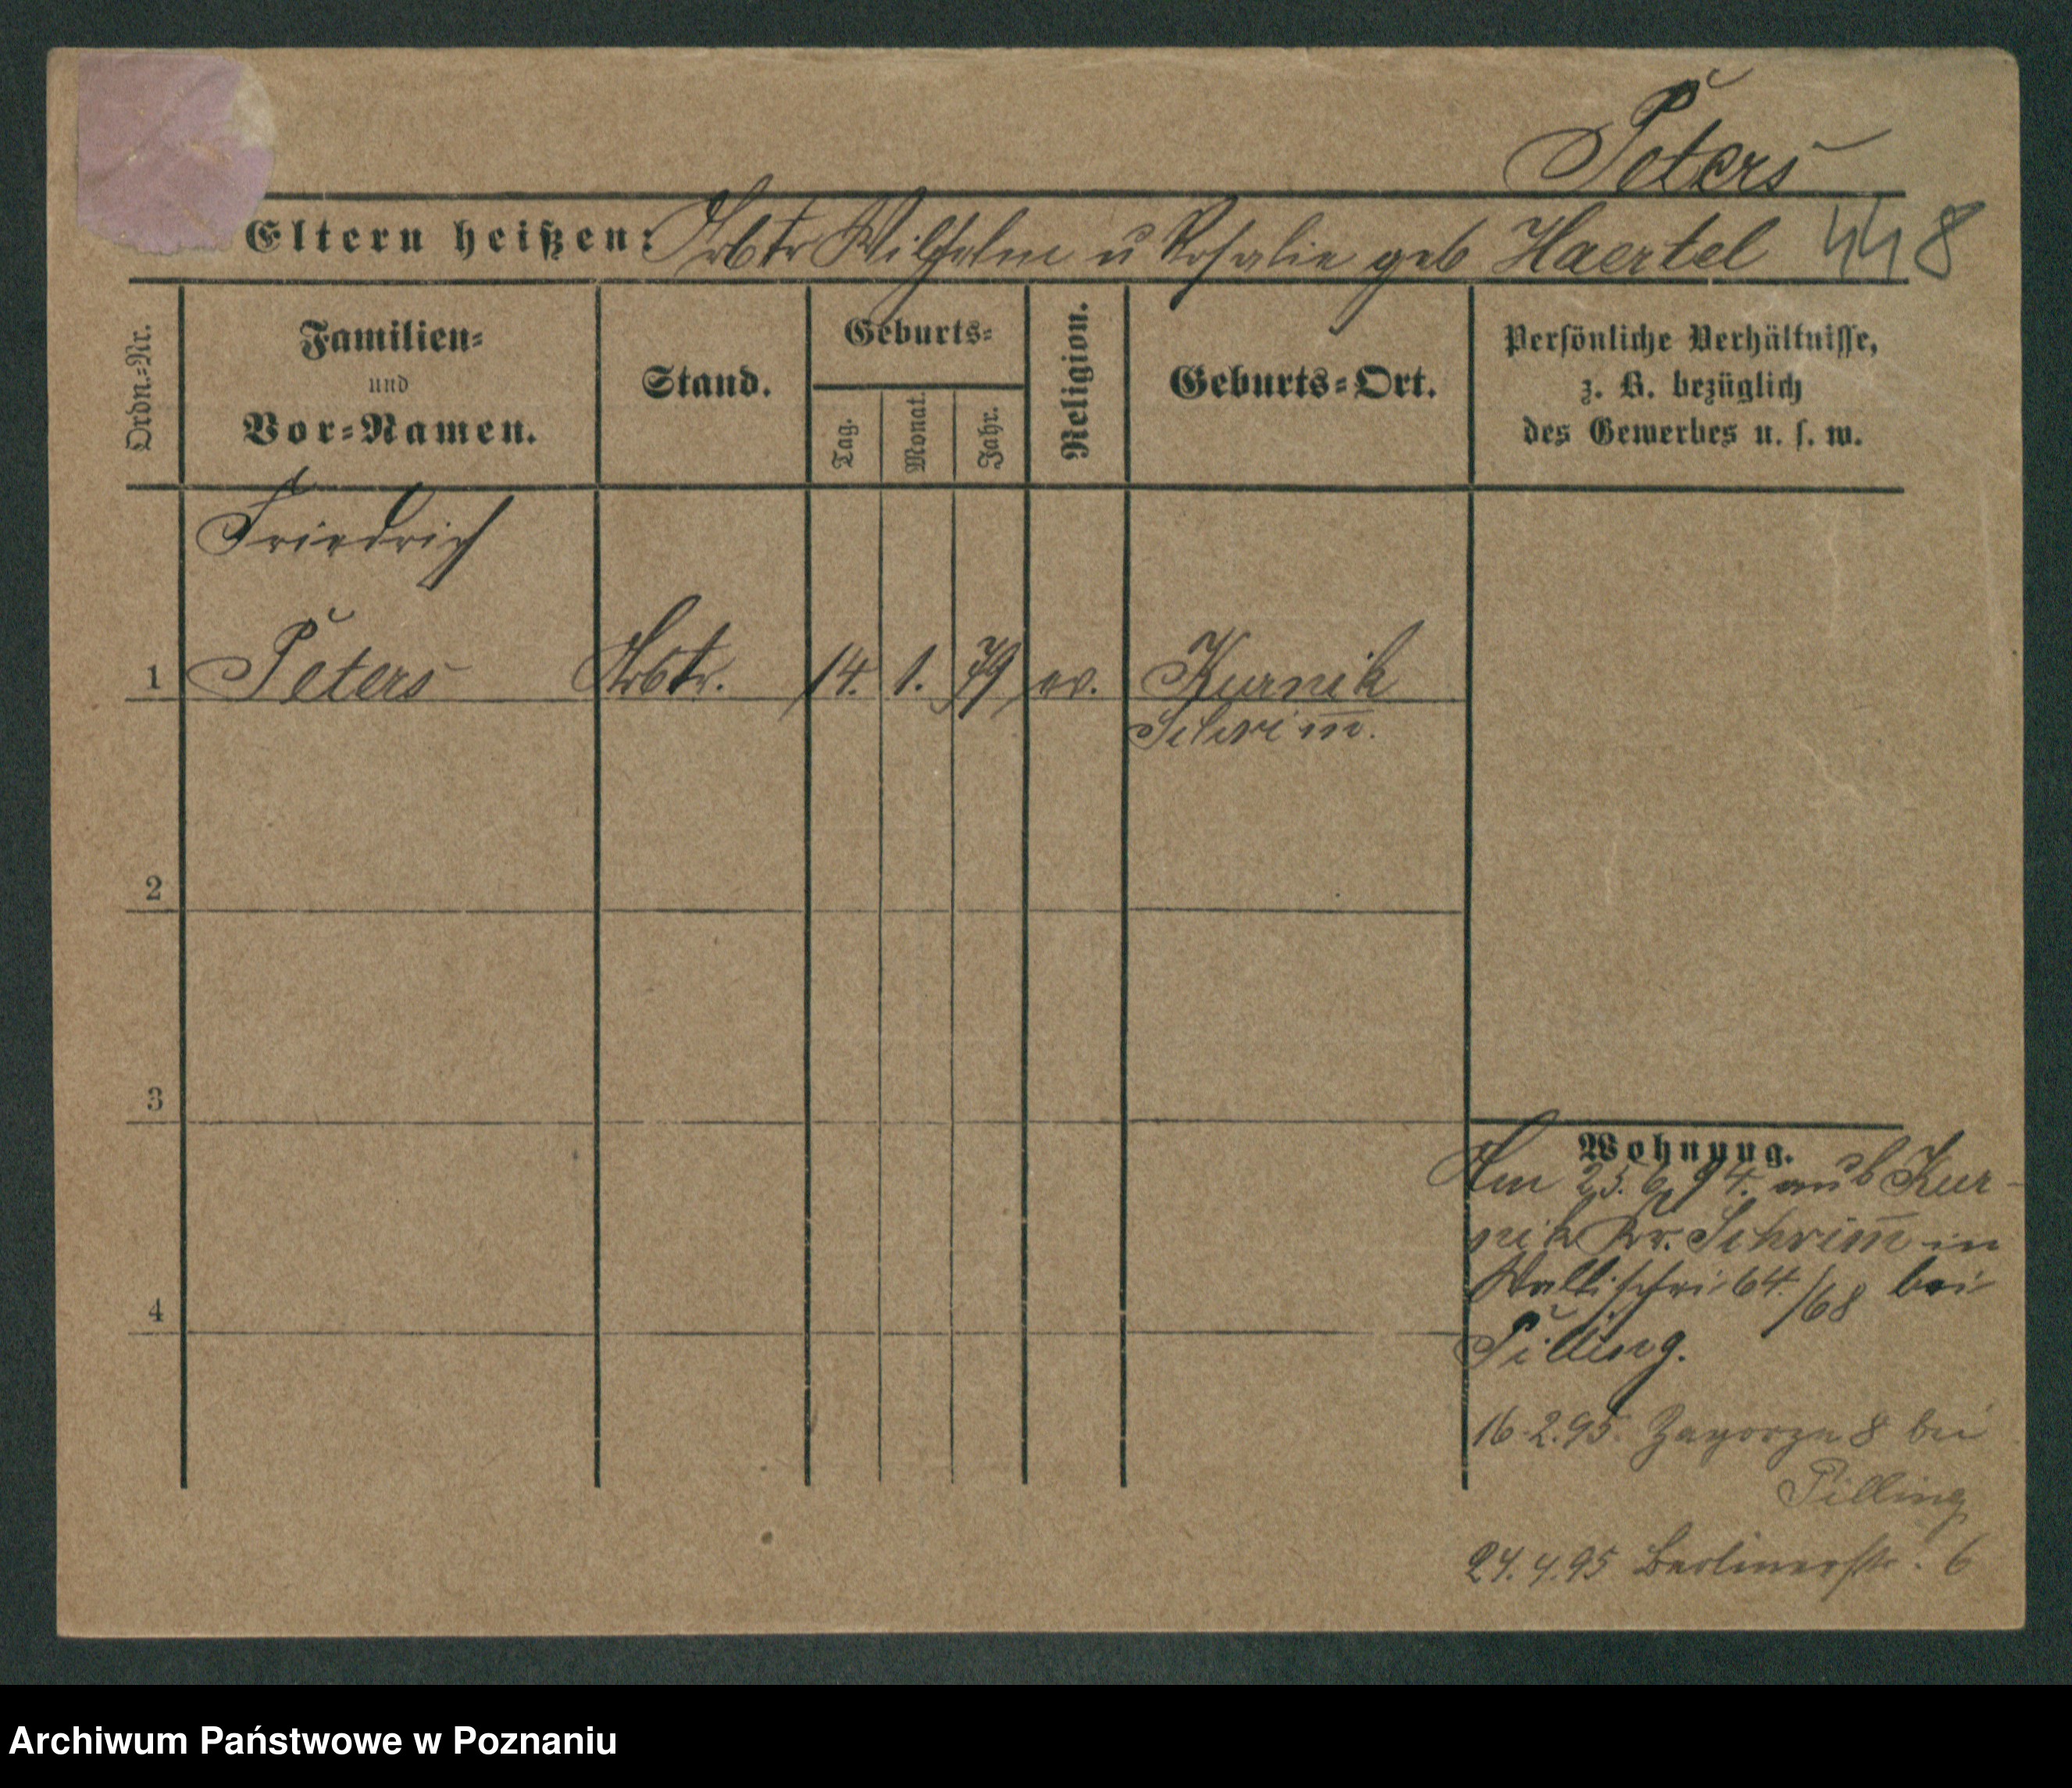 Peters
Eltern heißen: Arbtr Wilhelm u Rosalie geb Haertel 448
Ordn.=Nr.
Familien=
und
Vor=Namen.
Stand.
Geburts=
Tag.
Monat.
Jahr.
Religion.
Geburts=Ort.
Persönliche Verhältnisse,
z. B. bezüglich
des Gewerbes u. s. w.
Friedrich
1 Peters Arbtr. 14. 1. 79 ev. Kurnik
Schrim̅.
2
3
4
Wohnung.
Am 25. 6. 94. aus Kur-
nik Kr. Schrim̅ in
Wallischei 64./68 bei
Pilling.
16.2.95. Zagorze 8 bei
Pilling
24.4.95 Berlinerstr. 6
Archiwum Państwowe w Poznaniu